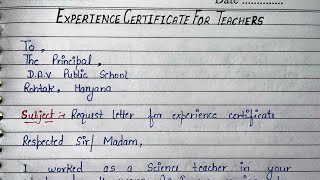 Date ..............
EXPERIENCE CERTIFICATE FOR TEACHERS
To,
The Principal,
D.A.V Public School
Rohtak, Haryana
Subject :- Request letter for experience certificate
Respected Sir/Madam,
I worked as a Science teacher in your